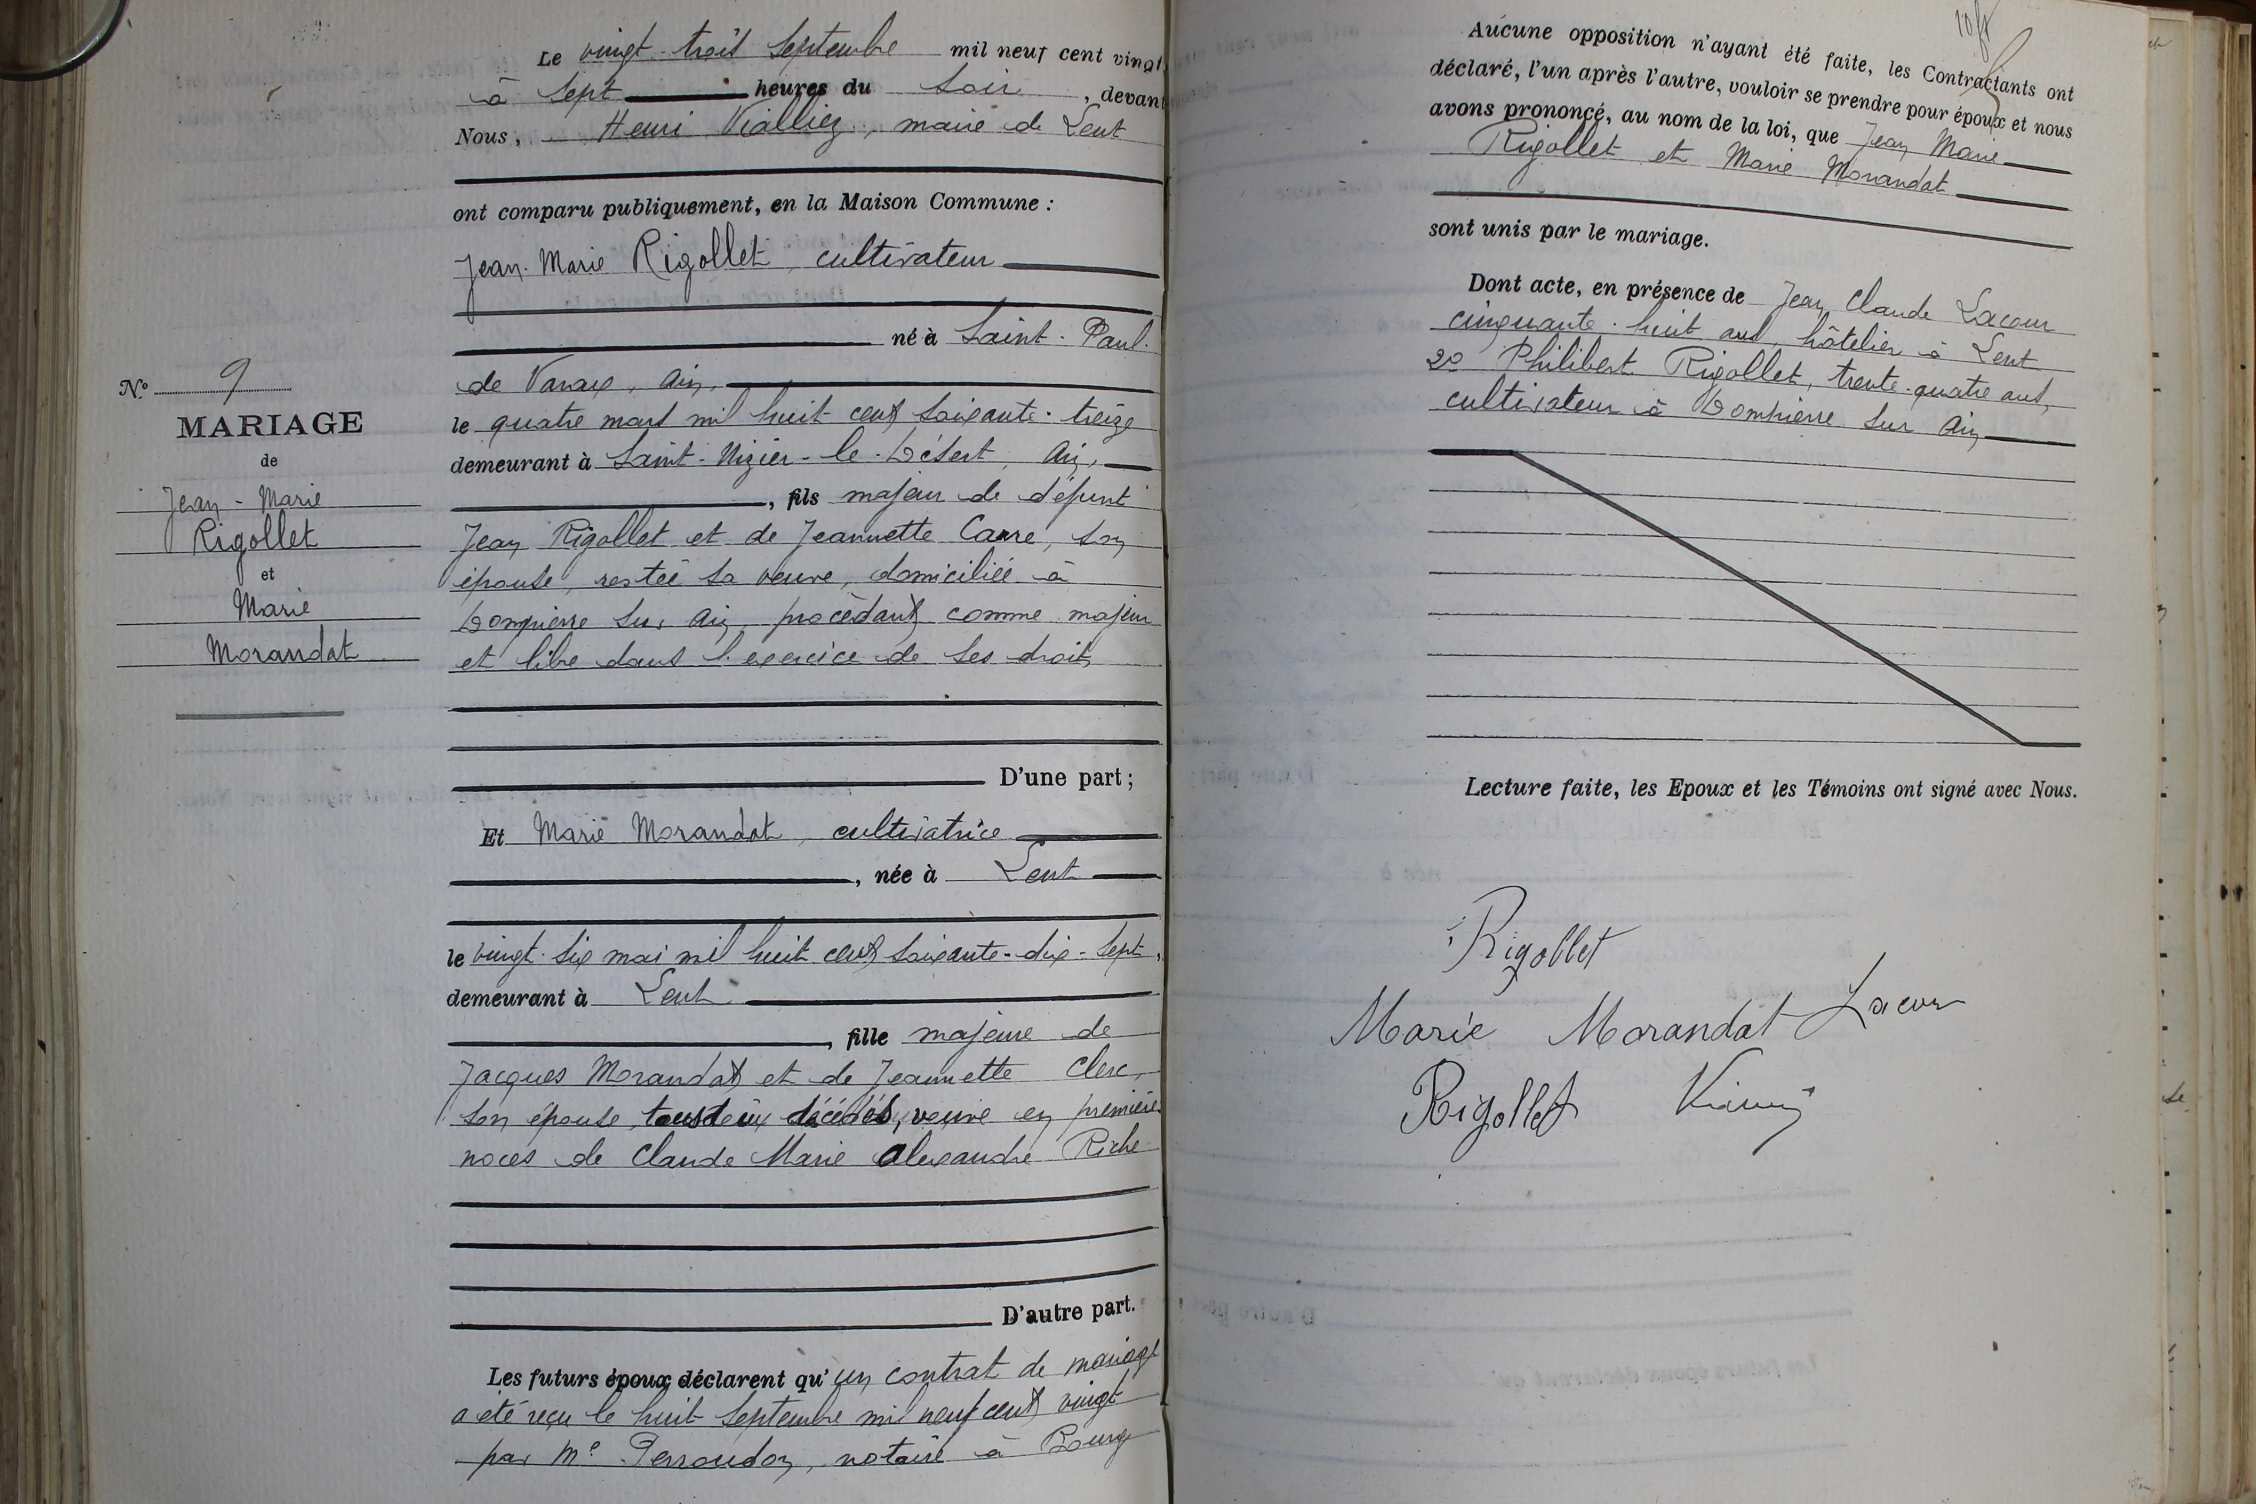 N° 9
MARIAGE
de
Jean-Marie
Rigollet
et
Marie
Morandat
Le vingt-trois Septembre mil neuf cent vingt
à Sept heures du Soir, devant
Nous, Henri Vialliez, maire de Lent
ont comparu publiquement, en la Maison Commune :
Jean-Marie Rigollet, cultivateur
né à Saint-Paul-
de Varax, Ain,
le quatre mars mil huit cent soixante-treize
demeurant à Saint-Nizier-le-Désert, Ain,
, fils majeur de défunt
Jean Rigollet et de Jeannette Carre, son
épouse, restée sa veuve, domiciliée à
Dompierre sur Ain, procédant comme majeur
et libre dans l'exercice de ses droits
D'une part ;
Et Marie Morandat, cultivatrice
, née à Lent
le vingt-six mai mil huit cent soixante-dix-sept,
demeurant à Lent
, fille majeure de
Jacques Morandat et de Jeannette Clerc,
son épouse, tous deux décédés, veuve en première
noces de Claude Marie Alexandre Riche
D'autre part.
Les futurs époux déclarent qu'un contrat de mariage
a été reçu le huit Septembre mil neuf cent vingt
par Me Perroudon, notaire à Bourg
Aucune opposition n'ayant été faite, les Contractants ont
déclaré, l'un après l'autre, vouloir se prendre pour époux et nous
avons prononcé, au nom de la loi, que Jean Marie
Rigollet et Marie Morandat
sont unis par le mariage.
Dont acte, en présence de Jean Claude Lacour
cinquante-huit ans, hôtelier à Lent
2° Philibert Rigollet, trente-quatre ans,
cultivateur à Dompierre sur Ain
Lecture faite, les Epoux et les Témoins ont signé avec Nous.
Rigollet
Marie Morandat Lacour
Rigollet